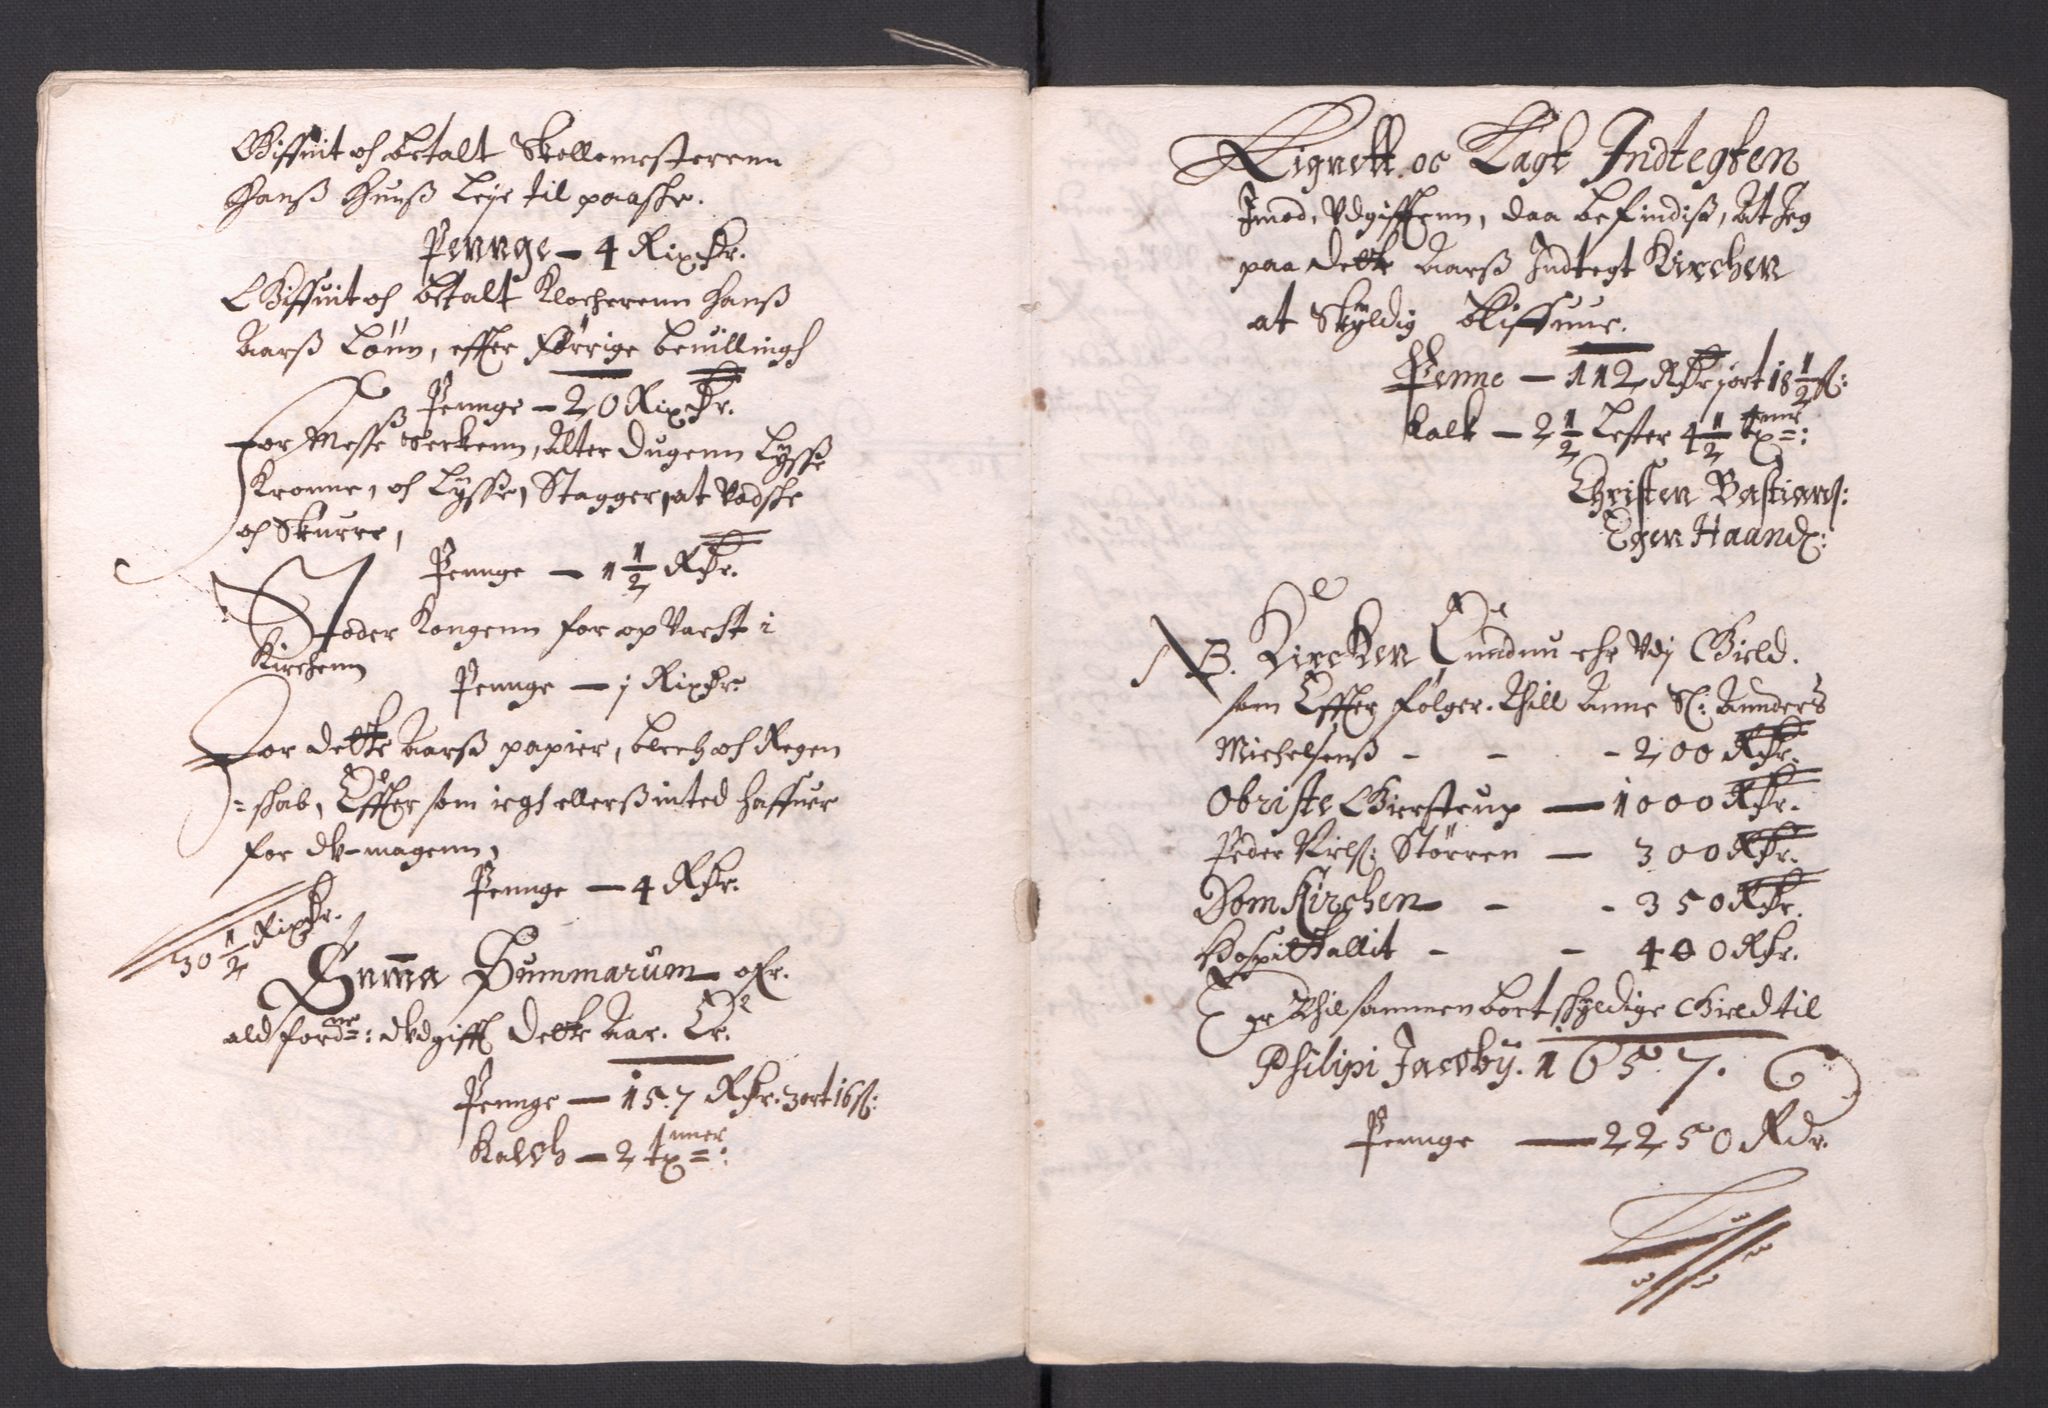 Giffuit och betalt Skollemesterenn
Hanß Huuß Leye til paaske.
Pennge – 4 Rixdr.
Giffuit och betalt Klocherenn Hanß
Aarß Lönn, effter förrige beuillingh
Pennge – 20 Rixdr.
For Messe Serkenn, Alter Dugenn Lysse
Kronne, och Lysse, Stagger, at Vadske
och Skurre,
Pennge – 1 1/2 Rdr.
Kongenn for op Vacht i
Kirchenn
Pennge – j Rixdr.
For dette Aarß papier, blech och Regen
=skab, Effter som iegh ellerß inted haffuer
for vmagenn,
Pennge – 4 Rdr.
30 1/2 Rixdr.
Summa Summarum ofr.
ald fordne: vdgifft Dette Aar. Er.
Pennge – 157 Rdr. 3 ort 16 ß:
Kalch – 2 tnner:
Lignett oc Lagt Indtegten
Imod, Vdgifftenn, daa befindiß, At Jeg
paa dette Aarß Indtegt Kirchen
at Skyldig bliffuue.
Penne – 112 Rdr j ort 18 1/2 ß:
Kalk – 2 1/2 Lester 4 1/2 tnnr:
Christen Bastians:
Egen Haand:
NB. Kircken Endnu ehr Vdj Gield.
som Effter følger. Thill Anne Sl: Anders
Michelsenß - - - 200 Rdr.
Obriste Gierstrup — 1000 Rdr.
Peder Nils: Störren — 300 Rdr.
Dom Kirchen - - 350 Rdr.
Hospitallit - - 400 Rdr.
Er Thilsammen bortskyldige Gield til
Philipi Jacoby. 1657.
Pennge — 2250 Rdr.